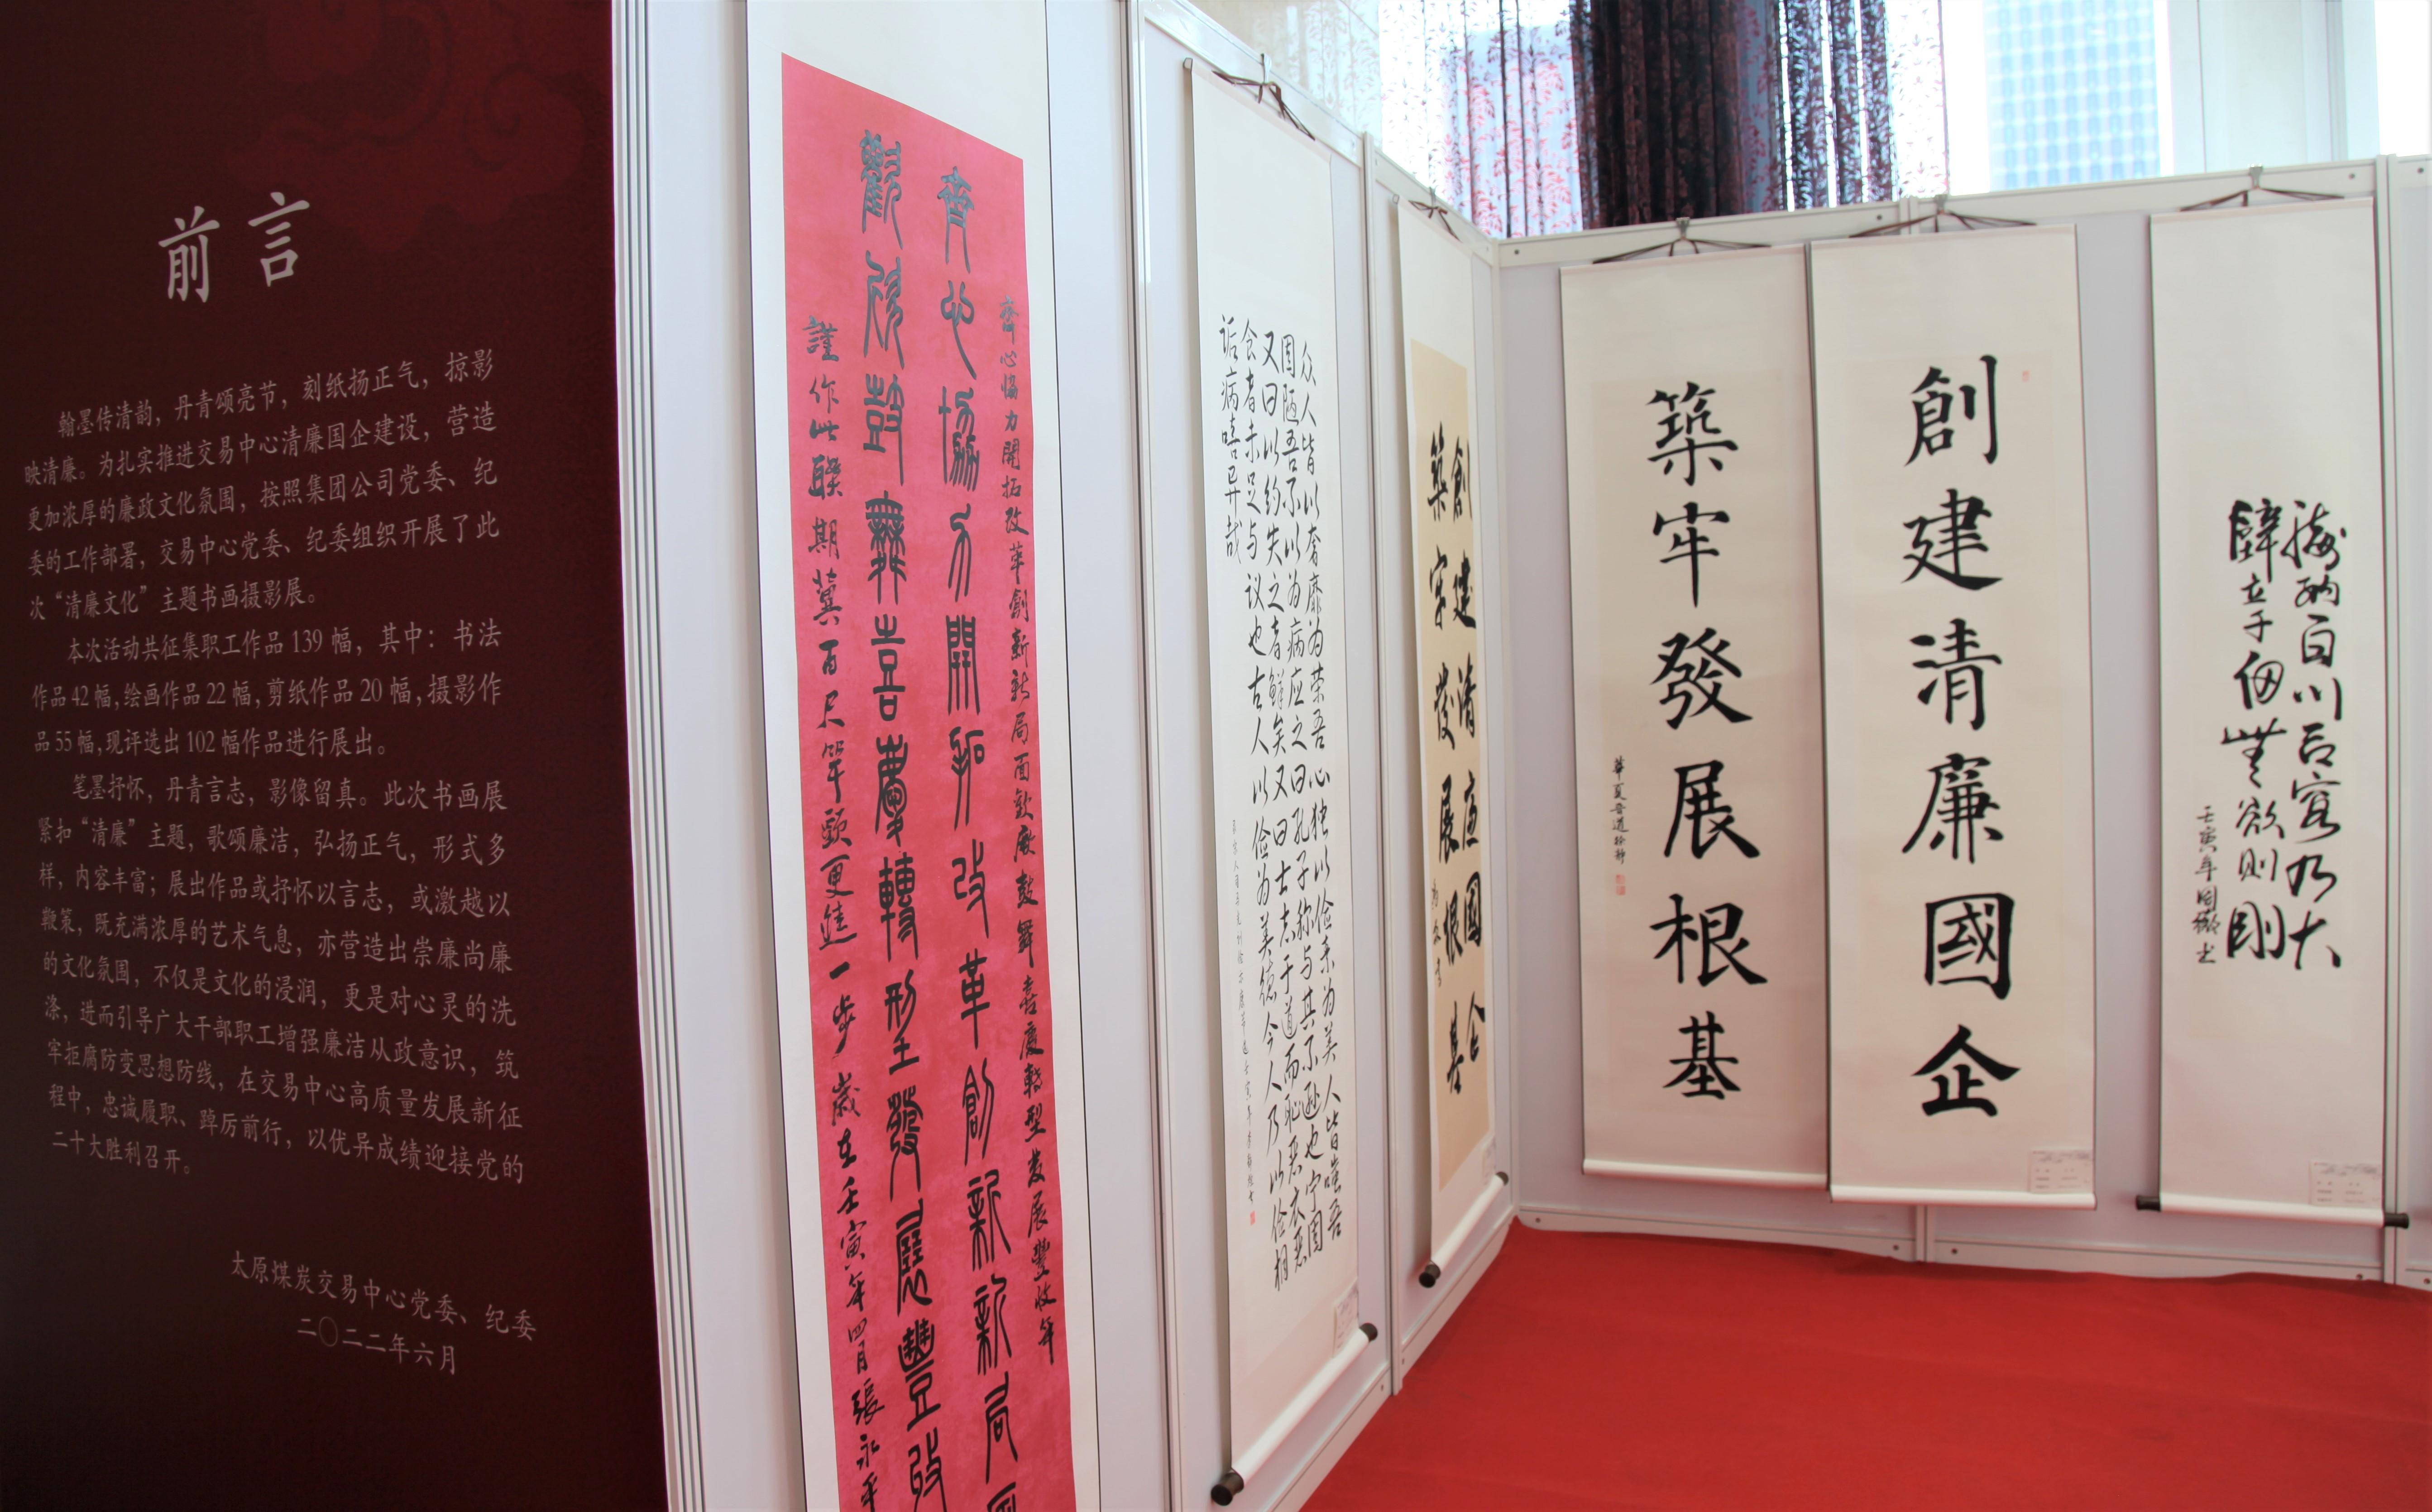 前言
翰墨传清韵，丹青颂亮节，刻纸扬正气，掠影
映清廉。为扎实推进交易中心清廉国企建设，营造
更加浓厚的廉政文化氛围，按照集团公司党委、纪
委的工作部署，交易中心党委、纪委组织开展了此
次“清廉文化”主题书画摄影展。
本次活动共征集职工作品139幅，其中：书法
作品42幅，绘画作品22幅，剪纸作品20幅，摄影作
品55幅，现评选出102幅作品进行展出。
笔墨抒怀，丹青言志，影像留真。此次书画展
紧扣“清廉”主题，歌颂廉洁，弘扬正气，形式多
样，内容丰富；展出作品或抒怀以言志，或激越以
鞭策，既充满浓厚的艺术气息，亦营造出崇廉尚廉
的文化氛围，不仅是文化的浸润，更是对心灵的洗
涤，进而引导广大干部职工增强廉洁从政意识，筑
牢拒腐防变思想防线，在交易中心高质量发展新征
程中，忠诚履职、踔厉前行，以优异成绩迎接党的
二十大胜利召开。
太原煤炭交易中心党委、纪委
二〇二二年六月
齊心協力開拓改革創新新局面歡欣鼓舞喜慶轉型發展豐收年
齊心協力開拓改革創新新局
觀欣鼓舞喜慶轉型發展豐收
謹作此聯期冀百尺竿頭更進一步歲在壬寅年四月張永平
众人皆以奢靡为荣吾心独以俭素为美人皆嗤吾
固陋吾不以为病应之曰孔子称与其不逊也宁固
又曰以约失之者鲜矣又曰士志于道而耻恶衣恶
食者未足与议也古人以俭为美德今人乃以俭相
诟病嘻异哉
創建清廉國企
築牢發展根基
創建清廉國企
築牢發展根基
海納百川有容乃大
壁立千仞無欲則剛
壬寅年